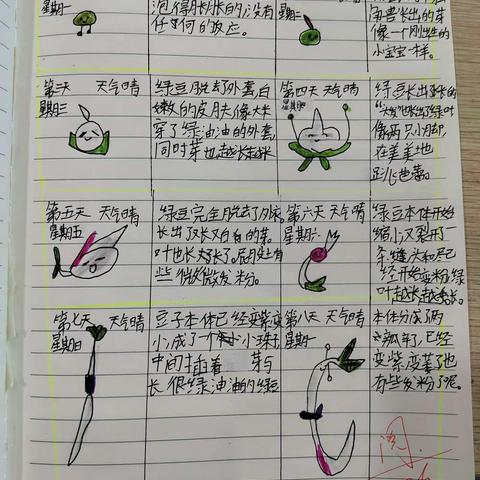 星期一
泡得胀胀的,没有
任何的反应。
星期二
角兽长出的芽
像一个刚出生的
小宝宝一样。
第三天 天气晴
星期三
绿豆脱去了外套,白
嫩的皮肤像大米
穿了绿油油的外套,
同时芽也越长越长
第四天 天气晴
星期四
绿豆长出了长长的
在美美地
第五天 天气晴
星期五
绿豆完全脱去了外衣,
长出了又长又白的芽。
叶也长大张了。尾处有
些微微发粉。
第六天 天气晴
星期六
绿豆本体开始
缩小又裂开了一
条缝,头和尾已
经开始变粉,绿
叶越长越长。
第七天 天气晴
星期日
豆子本体已经变紫变
小成了一个小球子,
中间插着 芽与
长很绿油油的绿豆
第八天 天气晴
星期一
本体分成了两
瓣了,已经
变紫,变蔫了也
有些发粉了呢。
阅